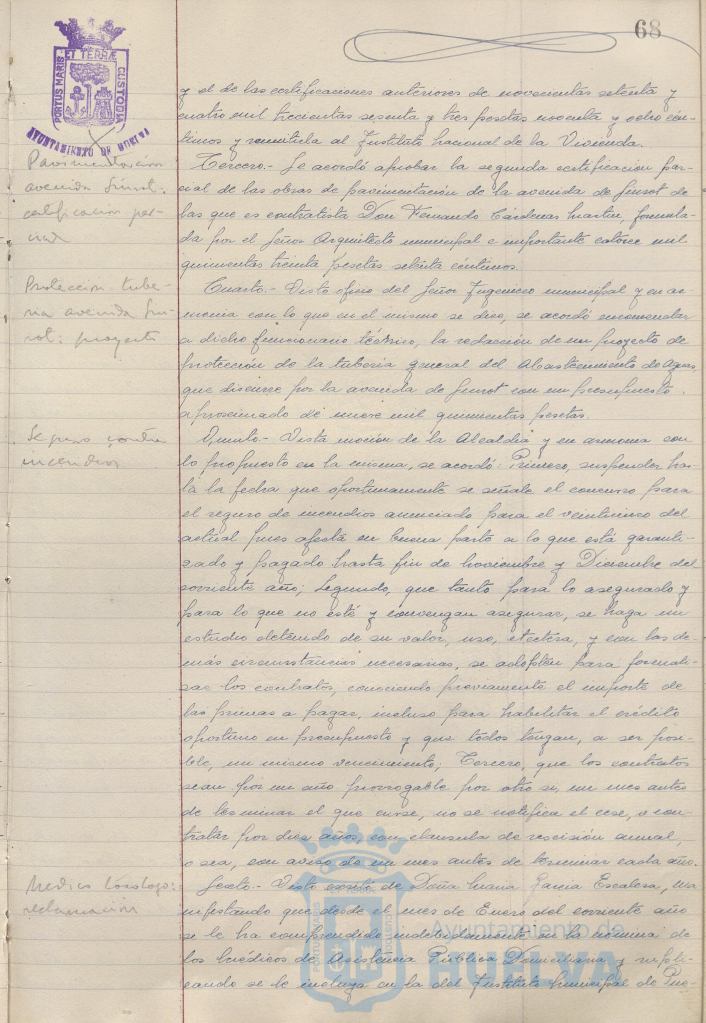 68
PORTUS MARIS ET TERRÆ CUSTODIA
AYUNTAMIENTO DE HUELVA
y el de las certificaciones anteriores de novecientas setenta y
cuatro mil trecientas sesenta y tres pesetas noventa y ocho cén-
timos y remitirla al Instituto Nacional de la Vivienda.
Pavimentación
avenida Guirot:
certificación par-
cial
Tercero.- Se acordó aprobar la segunda certificación par-
cial de las obras de pavimentación de la avenida de Guirot de
las que es contratista Don Fernando Cárdenas Martin, formula-
da por el Señor Arquitecto municipal e importante catorce mil
quinientas treinta pesetas setenta céntimos.
Protección tube-
ria avenida Gui-
rot: proyecto
Cuarto.- Visto oficio del Señor Ingeniero municipal y en ar-
monia con lo que en el mismo se dice, se acordó encomendar
a dicho funcionario técnico, la redacción de un proyecto de
protección de la tuberia general del Abastecimiento de Aguas
que discurre por la avenida de Guirot con un presupuesto
aproximado de nueve mil quinientas pesetas.
Seguro contra
incendios
Quinto.- Vista moción de la Alcaldia y en armonia con
lo propuesto en la misma, se acordó: Primero, suspender has-
ta la fecha que oportunamente se señale el concurso para
el seguro de incendios anunciado para el veinticinco del
actual pues afecta en buena parte a lo que está garanti-
zado y pagado hasta fin de Noviembre y Diciembre del
corriente año; Segundo, que tanto para lo asegurado y
para lo que no esté y convengan asegurar, se haga un
estudio detenido de su valor, uso, etcétera, y con las de-
más circunstancias necesarias, se adopten para formali-
zar los contratos, conociendo previamente el importe de
las primas a pagar, incluso para habilitar el crédito
oportuno en presupuesto y que todos tengan, a ser posi-
ble, un mismo vencimiento; Tercero, que los contratos
sean por un año prorrogable por otro si, un mes antes
de terminar el que curse, no se notifica el cese, o con-
tratar por diez años, con clausula de rescisión anual,
o sea, con aviso de un mes antes de terminar cada año.
Medico Tocólogo:
reclamación
Sexto.- Visto escrito de Doña Garcia Escalera, ma-
nifestando que desde el mes de Enero del corriente año
se le ha comprendido indebidamente en la nómina de
los Médicos de Asistencia Pública Domiciliaria y supli-
cando se le incluya en la del Instituto Municipal de Pue-
Ayuntamiento de
HUELVA